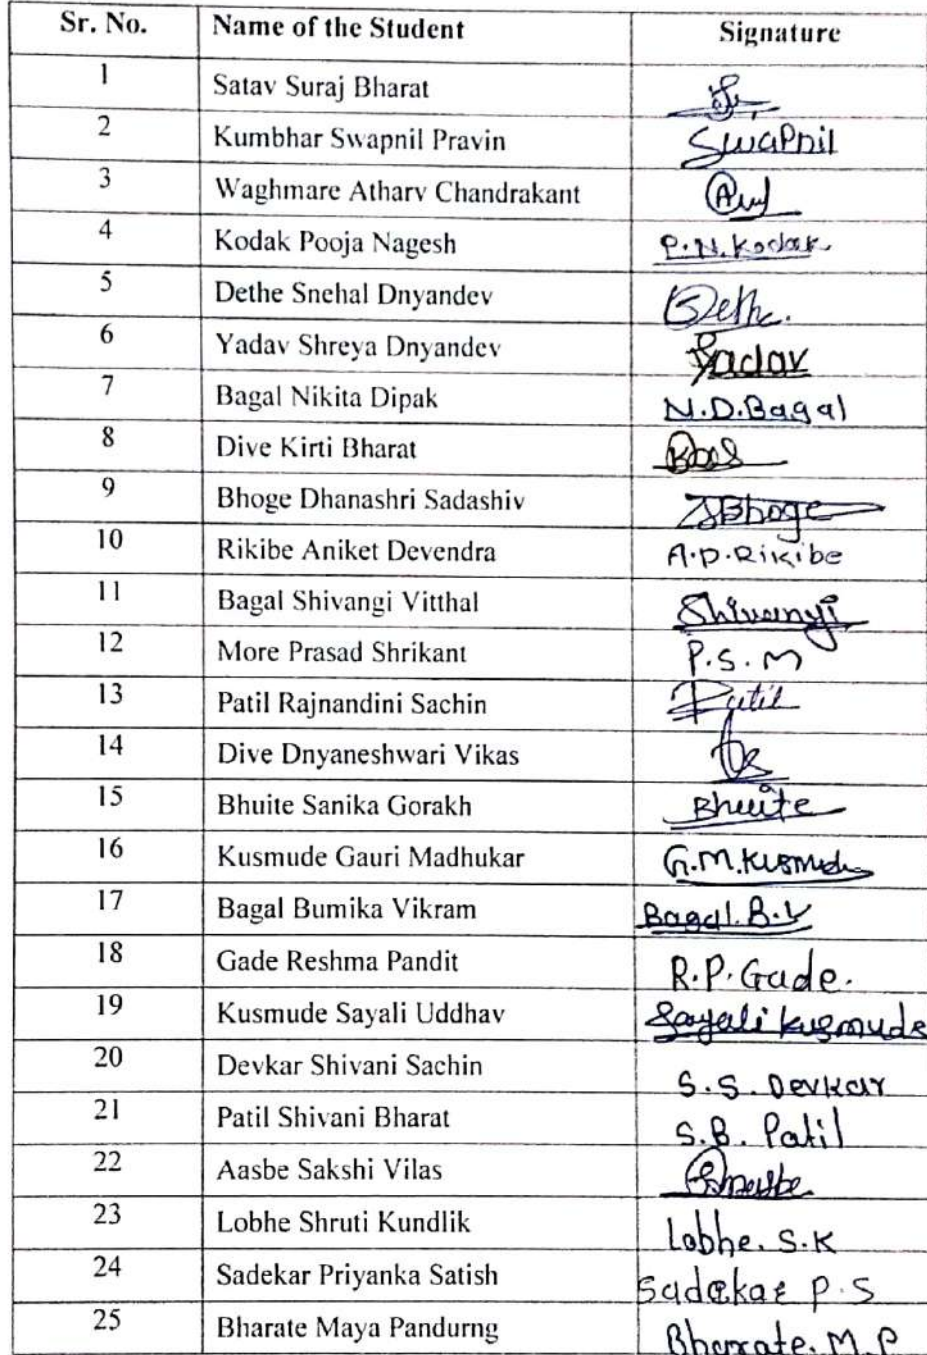 Sr. No. Name of the Student Signature
1 Satav Suraj Bharat
2 Kumbhar Swapnil Pravin Swapnil
3 Waghmare Atharv Chandrakant
4 Kodak Pooja Nagesh P.N.Kodak
5 Dethe Snehal Dnyandev Dethe.
6 Yadav Shreya Dnyandev Yadav
7 Bagal Nikita Dipak N.D.Bagal
8 Dive Kirti Bharat
9 Bhoge Dhanashri Sadashiv Bhoge
10 Rikibe Aniket Devendra A.D.Rikibe
11 Bagal Shivangi Vitthal Shivangi
12 More Prasad Shrikant P.S.M
13 Patil Rajnandini Sachin Patil
14 Dive Dnyaneshwari Vikas
15 Bhuite Sanika Gorakh Bhuite
16 Kusmude Gauri Madhukar G.M.Kusmude
17 Bagal Bumika Vikram Bagal.B.V
18 Gade Reshma Pandit R.P.Gade.
19 Kusmude Sayali Uddhav Sayali Kusmude
20 Devkar Shivani Sachin S.S. Devkar
21 Patil Shivani Bharat S.B. Patil
22 Aasbe Sakshi Vilas
23 Lobhe Shruti Kundlik Lobhe. S.K
24 Sadekar Priyanka Satish Sadekar P.S
25 Bharate Maya Pandurng Bharate. M.P